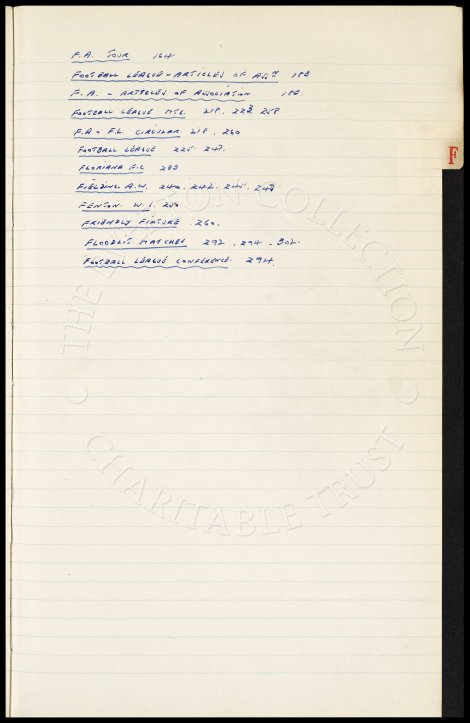 F.A. TOUR 164
FOOTBALL LEAGUE - ARTICLES OF ASSN 188
F.A. - ARTICLES OF ASSOCIATION 188
FOOTBALL LEAGUE MTG. 218. 223 258
F.A & F.L. CIRCULAR. 218. 260
FOOTBALL LEAGUE 225. 247.
FLORIANA F.C 233
FIELDING. A.W. 240. 242. 245. 248
FENTON. W.J. 250
FRIENDLY FIXTURE 260.
FLOODLIT MATCHES 292. 294. 302.
FOOTBALL LEAGUE CONFERENCE. 294.
F
THE EVERTON COLLECTION
CHARITABLE TRUST